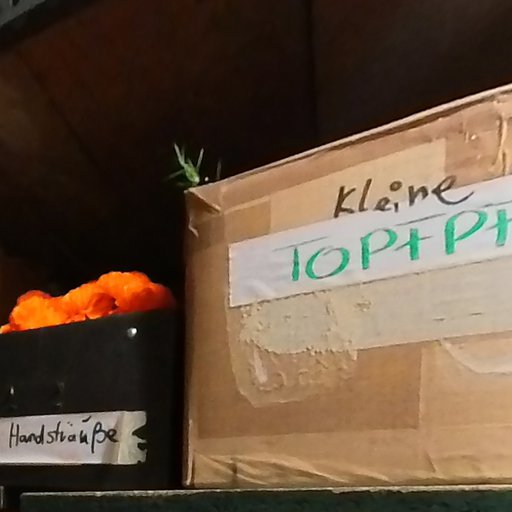 Kleine
TOPFPF
Handsträuße